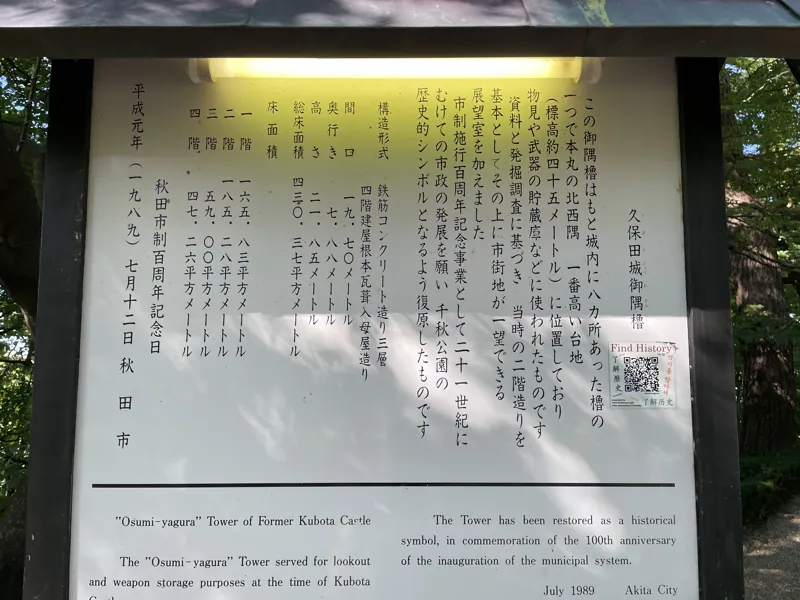 久保田城御隅櫓
この御隅櫓はもと城内に八カ所あった櫓の
一つで本丸の北西隅 一番高い台地
(標高約四十五メートル)に位置しており
物見や武器の貯蔵庫などに使われたものです
資料と発掘調査に基づき 当時の二階造りを
基本としてその上に市街地が一望できる
展望室を加えました
市制施行百周年記念事業として二十一世紀に
むけての市政の発展を願い 千秋公園の
歴史的シンボルとなるよう復原したものです
構造形式 鉄筋コンクリート造り三層
四階建屋根本瓦葺入母屋造り
間口 一九.七〇メートル
奥行き 七.八八メートル
高さ 二一.八五メートル
総床面積 四二〇.三七平方メートル
床面積
一階 一六五.八三平方メートル
二階 一八五.二八平方メートル
三階 五九.〇〇平方メートル
四階 四七.二六平方メートル
秋田市制百周年記念日
平成元年(一九八九)七月十二日 秋田市
Find History
了解歴史
了解历史
"Osumi-yagura" Tower of Former Kubota Castle
The "Osumi-yagura" Tower served for lookout
and weapon storage purposes at the time of Kubota
The Tower has been restored as a historical
symbol, in commemoration of the 100th anniversary
of the inauguration of the municipal system.
July 1989 Akita City